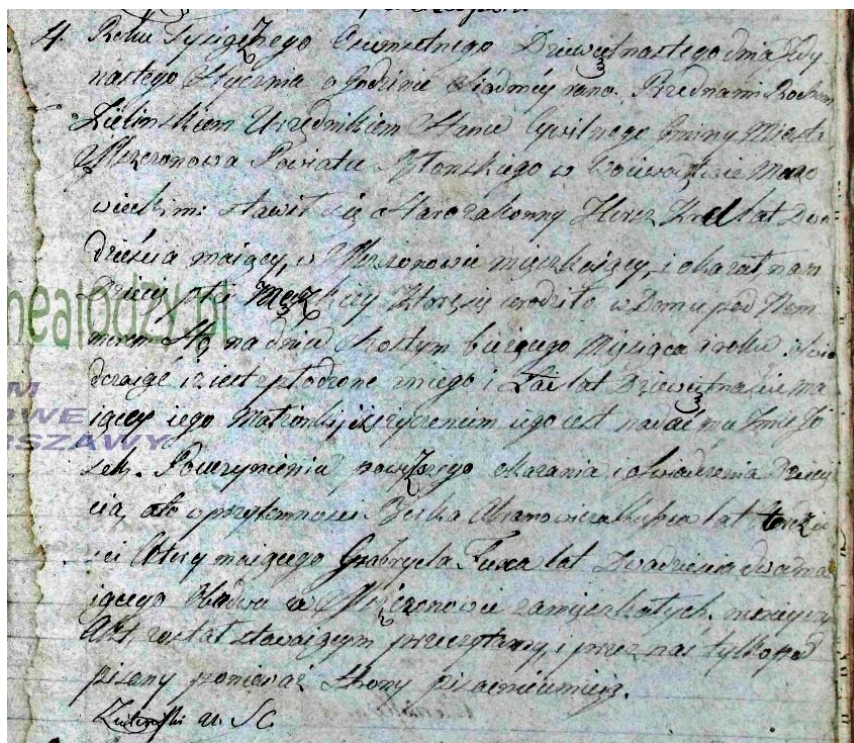 4. Roku Tysiącznego Ośmsetnego Dziewiętnastego dnia Jedy
nastego Stycznia o godzinie siódmey rano. Przed nami Rochem
Zielinskiem Urzędnikiem Stanu Cywilnego Gminy Miasta
Mszczonowa Powiatu Błonskiego w Wojewodztwie Mazo
wieckim: stawił się starozakonny Herszk lat Dwa
dzieścia maiący, w Mszczonowie mieszkaiący, i okazał nam
Dziecię płci Męzkiey które się urodziło w Domu pod Num
merem na dniu szostym bieżącego Miesiąca i roku. oświa
dczaiąc iż iest spłodzone z niego i lat Dziewiętnaście ma
iącey iego Małżonki, iż życzeniem iego iest nadać mu Imie Jo
sek. Po uczynieniu powyższego okazania i oświadczenia Dziecię
cia, ato w przytomności Berka Abramowicza lat trzydzie
ści cztery maiącego Gabryela Fuxa lat Dwadzieścia dwa ma
iącego Obadwu w Mszczonowie zamieszkałych. ninieyszy
Akt został stawaiącym przeczytany, i przez nas tylko pod
pisany ponieważ Strony pisać nieumieią.
Zielinski U. S. C.
nealodzy.pl
M
OWE
SZAWY